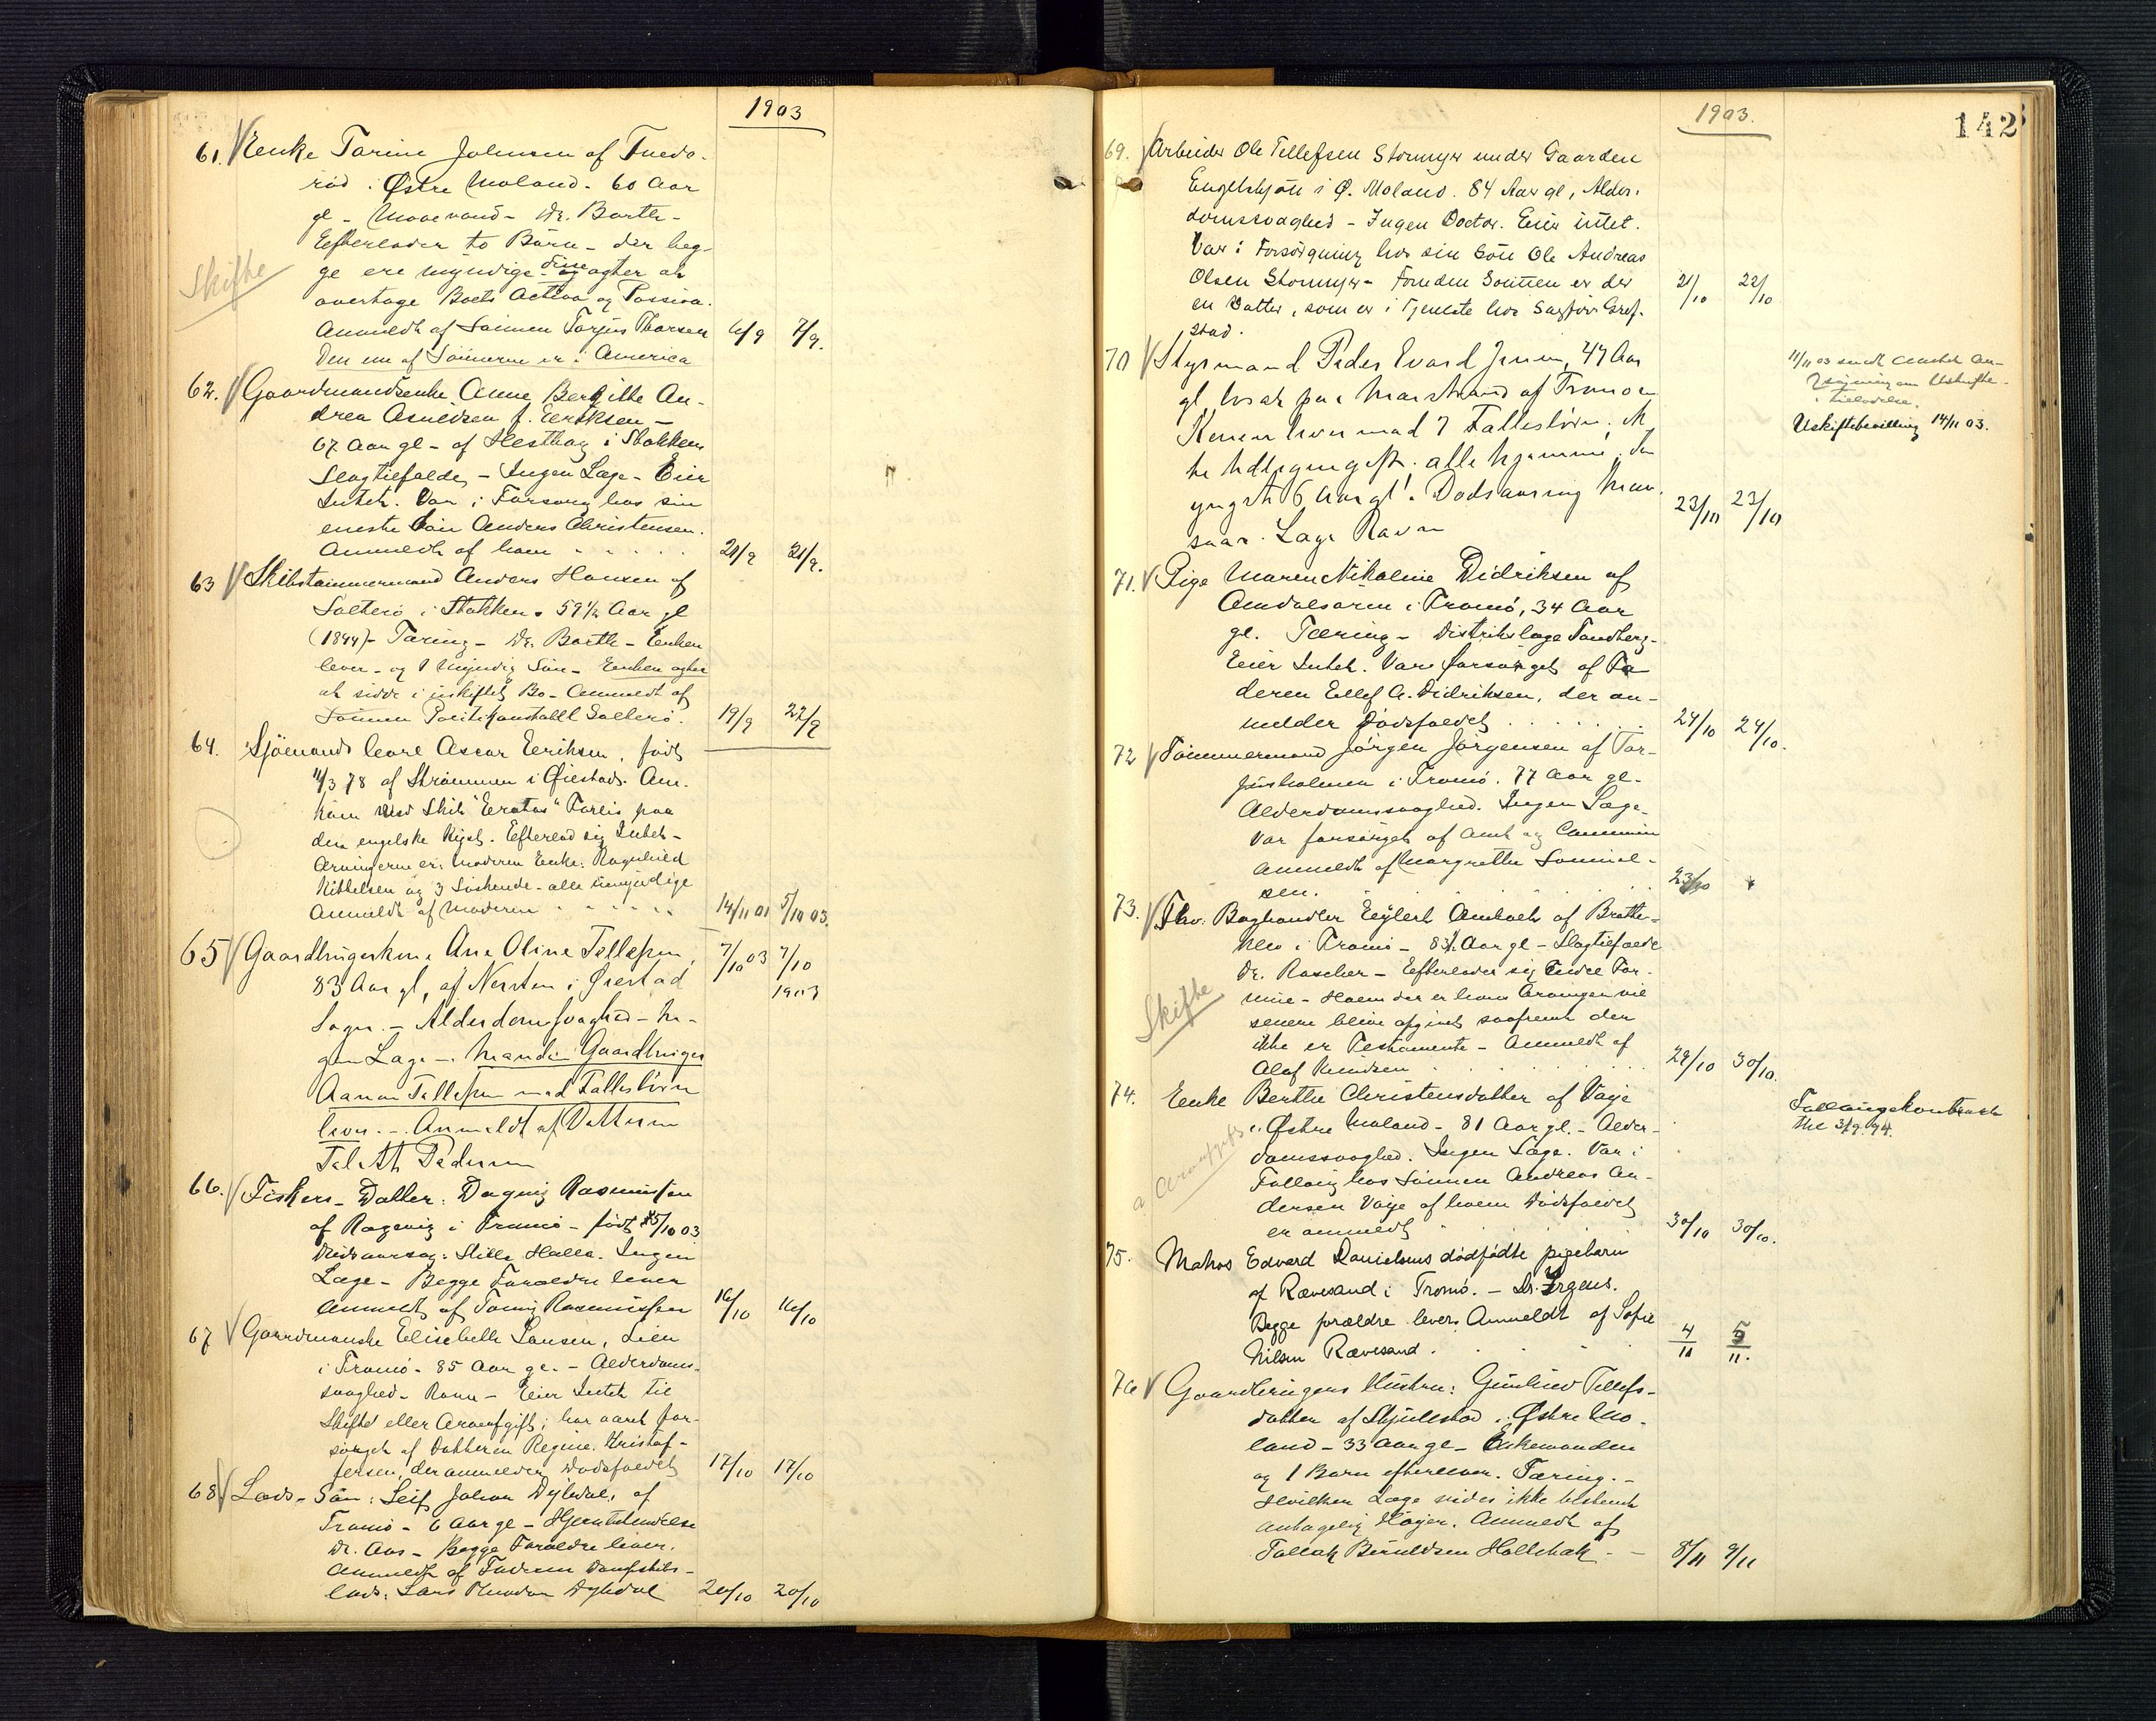 1903
61. Enke Tarine Johnsen af Treds-
rød i Østre Moland. 60 Aar
gl - Mavevand - Dr. Barth -
Efterlader to Børn - der beg-
ge ere myndige. disse agter at
overtage Boets Activa og Passiva.
Anmeldt af Sønnen Torjus Thorsen 6/9 7/9.
Den ene af Sønnerne er i America
Skifte
62. Gaardmandsenke Anne Bergithe An-
drea Asuldsen f. Eeriksen -
67 Aar gl - af Hesthag i Stokken
Slagtilfælde, - Ingen Læge - Eier
Intet. Var i Forsørg hos sin
eneste Søn Anders Christensen.
Anmeldt af ham . . . . . 21/9 21/9.
63 Skibstømmermand Anders Hansen af
Salterø i Stokken. 59 1/2 Aar gl
(1844) - Tæring - Dr. Barth - Enken
lever - og 1 myndig Søn - Enken agter
at sidde i uskiftet Bo - Anmeldt af
Sønnen Politikonstabel Salterø. 19/9 22/9
64. Sjømand Carl Ascar Eeriksen, født
11/3 78 af Strømmen i Øiestad. Om-
kom med Skib "Eratas" Forlis paa
den engelske Kyst. Efterlod sig Intet -
Arvingerne er: Moderen Enke: Ragnhild
Kittelsen og 3 Søskende - alle umyndige
Anmeldt af Moderen . . . . . 14/11 01 5/10 03.
65 Gaardbrugerkone Ane Oline Tellefsen, 7/10 03 7/10
83 Aar gl, af Nersten i Øiestad 1903
Sogn. - Alderdomssvaghed - In-
gen Læge - Manden Gaardbruger
Aanon Tellefsen med Fællesbørn
lever. - Anmeldt af Datteren
Taleth Pedersen
66. Fiskers - Datter: Dagny Rasmussen
af Ragevig i Tromø - født 15/10 03
Dødsaarsag: Stille Halla. Ingen
Læge - Begge Forældre lever
Anmeldt af Tomy Rasmussen 16/10 16/10
67 Gaardmanske Elisabeth Larsen, Lien
i Tromø - 85 Aar gl. - Alderdoms-
svaghed - Ravn - Eier Intet til
Skifte eller Arveafgift; har været for-
sørget af Datteren Regine Kristof-
fersen, der anmelder Dødsfaldet 17/10 17/10
68 Lods - Søn: Leif Johan Dybdal, af
Tromø - 6 Aar gl - Hjertebetændelse
Dr. Aas - Begge Forældre lever.
Anmeldt af Faderen Dampskibs-
lods: Lars Theodor Dybdal 20/10 20/10
1903.
142
69. Arbeider Ole Tellefsen Stormyr under Gaarden
Engelskjøn i Ø. Moland. 84 Aar gl, Alder-
domssvaghed - Ingen Doctor. Eier intet.
Var i Forsørgning hos sin Søn Ole Andreas
Olsen Stormyr - Foruden Sønnen er der 21/10 22/10
en Datter, som er i Tjeneste hos Sagfør. Gref-
stad.
70 Styrmand Peder Evard Jensen, 47 Aar
gl, bosat paa Marstrand af Tromøen
Konen lever med 7 Fællesbørn,
alle hjemme, den
yngste 6 Aar gl. Dødsaarsag
Læge Ravn 23/10 23/10
11/11 03 sendt
Uskiftebevilling 14/11 03.
71. Pige Maren Nikoline Didriksen af
Omdalsøren i Tromø, 34 Aar
gl. Tæring - Distriktslæge Sandberg -
Eier Intet. Var forsørget af Fa-
deren Ellef A. Didriksen, der an-
melder Dødsfaldet . . . . . . 24/10 24/10.
72 Tømmermand Jørgen Jørgensen af Tor-
jusholmen i Tromø. 77 Aar gl -
Alderdomssvaghed. Ingen Læge
Var forsørget af Amt og Commun
Anmeldt af Margrethe Sommel-
sen. 23/10
73. Fhv. Boghandler Eylert Ambach af Bratte-
klev i Tromø - 83 1/2 Aar gl - Slagtilfælde
Dr. Roscher - Efterlader sig Endel For-
mue - Hvem der er hans Arvinger vil
senere blive opgivet saafremt der
ikke er Testamente - Anmeldt af
Olaf Knudsen . . . . 29/10 30/10.
Skifte
74. Enke Berthe Christensdatter af Vaje
i Østre Moland - 81 Aar gl. - Alder-
domssvaghed. Ingen Læge. Var i
Follaug hos Sønnen Andreas An-
dersen Vaje af hvem Dødsfaldet
er anmeldt . . . . 30/10 30/10.
a Arveafgift
Follaugskontrakt
thl 3/9 94.
75. Matros Edvard Danielsens dødfødte pigebarn
af Rævesand i Tromø. - Dr. Irgens.
Begge forældre lever. Anmeldt af Sofie
Nilsen Rævesand. 4/11 5/11.
76 Gaardbrugers Hustru: Gunhild Tellefs-
datter af Skjulestad i Østre Mo-
land - 33 Aar gl - Enkemanden
og 1 Barn efterlever. Tæring. -
Hvilken Læge vides ikke bestemt
antagelig Høyer. Anmeldt af
Tallak Beruldsen Holtebak - - 8/11 9/11